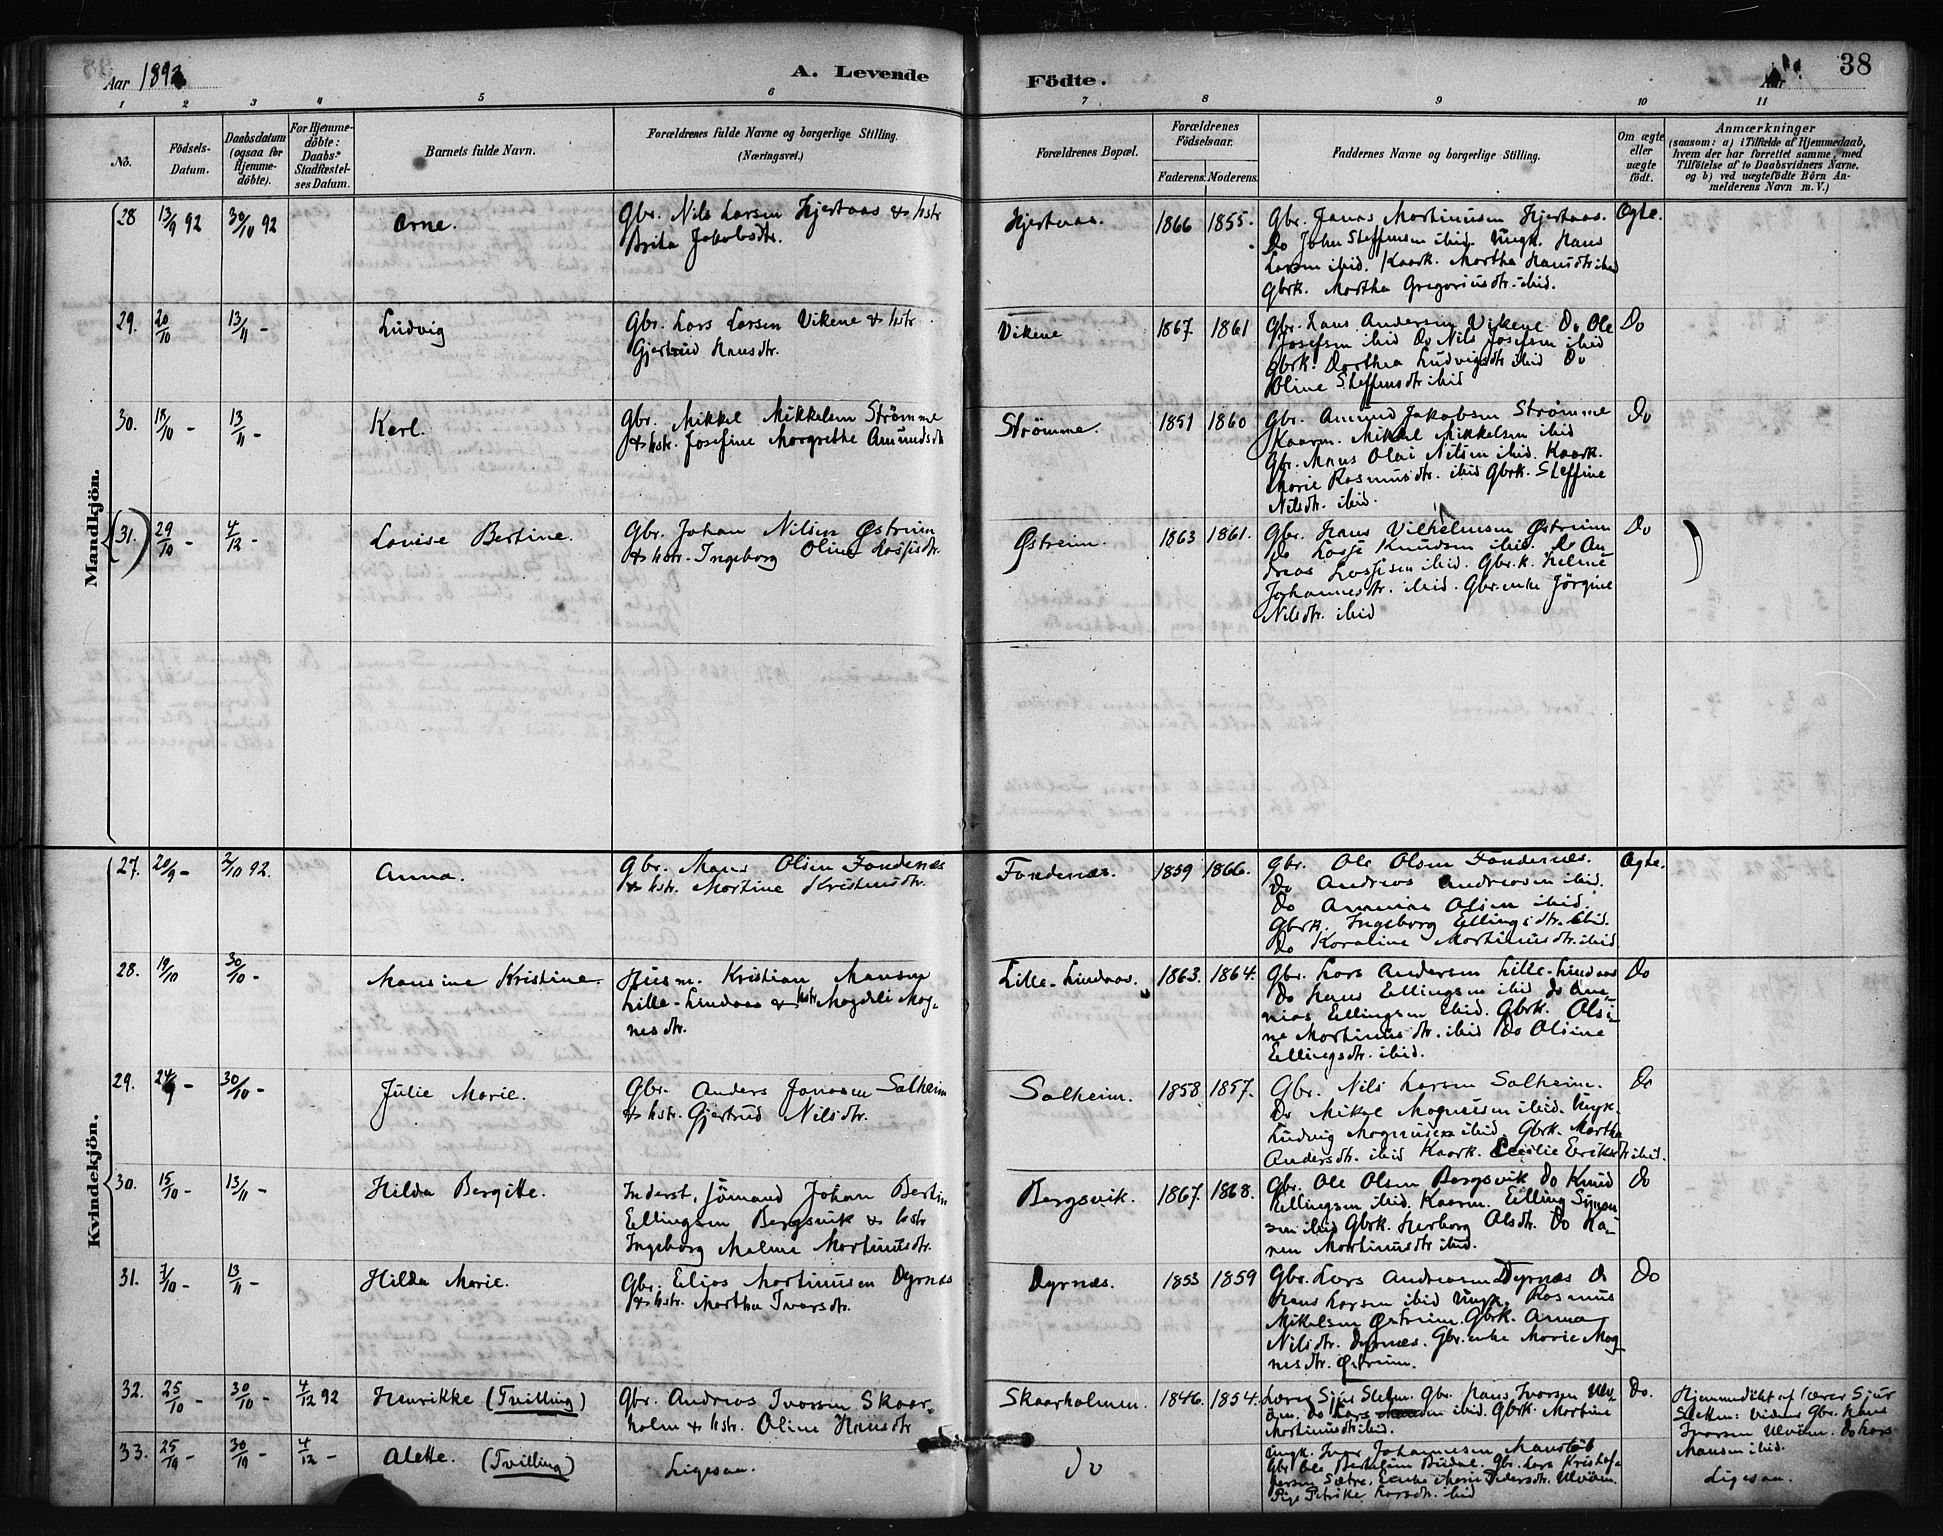 Aar 1892
A. Levende
Födte.
Aar
38
1 2 3 4 5 6 7 8 9 10 11
No.
Födsels-
Datum.
Daabsdatum
(ogsaa for
Hjemme-
döbte).
For Hjemme-
döbte:
Daabs-
Stadfæstel-
ses Datum.
Barnets fulde Navn.
Forældrenes fulde Navne og borgerlige Stilling.
(Næringsvei.)
Forældrenes Bopæl.
Forældrenes
Födselsaar.
Faderens. Moderens.
Faddernes Navne og borgerlige Stilling.
Om ægte
eller
uægte
födt.
Anmærkninger
(saasom: a) i Tilfælde af Hjemmedaab,
hvem der har forrettet samme, med
Tilföielse af to Daabsvidners Navne,
og b) ved uægtefödte Börn An-
melderens Navn m. V.)
Mandkjön.
28 13/9 92 30/10 92
Arne.
Gbr. Nils Larsen Hjertaas & hstr
Brita Jakobsdtr.
Hjertaas.
1866 1855.
Gbr. Jonas Martinusen Hjertaas.
Do John Steffensen ibid. Ungk. Hans
Larsen ibid. Kaark. Martha Hansdtr ibid
Gbrk. Martha Gregoriusdtr. ibid.
Ægte.
29. 20/10 13/11 -
Ludvig
Gbr. Lars Larsen Vikene & hstr
Gjertrud Hansdtr.
Vikene
1867 1861
Gbr. Hans Andersen Vikene Do Ole
Josefsen ibid Do Nils Josefsen ibid
Gbrk. Dorthea Ludvigsdtr ibid Do
Oline Steffensdtr ibid
Do
30. 18/10 - 13/11 -
Karl.
Gbr. Mikkel Mikkelsen Strømme
& hstr. Josefine Margrethe Amundsdtr
Strømme.
1851 1860
Gbr. Amund Jakobsen Strømme
Kaarm. Mikkel Mikkelsen ibid
Gbr. Mons Olai Nilsen ibid. Kaark.
Marie Rasmusdtr. ibid Gbrk. Steffine
Nilsdtr. ibid.
Do
(31.) 29/10 - 4/12 -
Lovise Bertine.
Gbr. Johan Nilsen Østreim
& hstr. Ingeborg Oline Lassesdtr.
Østreim.
1863 1861.
Gbr. Hans Vilhelmsen Østreim
Do Lasse Knudsen ibid. Do An
dreas Lassesen ibid. Gbr.k. Helene
Johannesdtr. ibid. Gbr.enke Jörgine
Nilsdtr. ibid
Do
Kvindekjön.
27. 20/9 - 2/10 92.
Anna.
Gbr. Mons Olsen Fondenæs
& hstr. Martine Kristensdtr.
Fondenæs.
1859 1866.
Gbr. Ole Olsen Fondernæs.
Do Andreas Andreasen ibid.
Do Ananias Olsen ibid.
Gbrk. Ingeborg Ellingsdtr. ibid.
Do Koraline Martinusdtr. ibid.
Ægte.
28. 19/10 30/10 -
Monsine Kristine.
Husm. Kristian Monsen
Lille-Lindaas & hstr Magdeli Mag-
nesdtr.
Lille-Lindaas.
1863. 1864.
Gbr. Lars Andersen Lille-Lindaas
Do Hans Ellingsen ibid Do Ana-
nias Ellingsen ibid. Gbrk. Olsi-
ne Martinusdtr. ibid Do Olsine
Ellingsdtr. ibid.
Do
29. 24/9 - 30/10 -
Julie Marie.
Gbr. Anders Jonasen Solheim
& hstr. Gjertrud Nilsdtr.
Solheim.
1858 1857.
Gbr. Nils Larsen Solheim.
Do Mikal Magnusen ibid. Ungk.
Ludvig Magnusen ibid Gbrk. Martha
Andersdtr. ibid Kaark. Cecilie Eriksdtr ibid.
Do
30. 15/10 - 13/11 -
Hilda Bergitte.
Inderst, Sömand Johan Bertin
Ellingsen Bergsvik & hstr
Ingeborg Malene Martinusdtr.
Bergsvik.
1867. 1868.
Gbr. Ole Olsen Bergsvik Do Knud
Ellingsen ibid. Kaarm. Elling Simon
sen ibid Gbrk. Herborg Olsdtr. Do Ka-
ren Martinusdtr ibid.
Do
31. 7/10 - 13/11 -
Hilda Marie.
Gbr. Elias Martinusen Dyrnæs
& hstr. Martha Ivarsdtr.
Dyrnæs.
1853 1859
Gbr. Lars Andreasen Dyrnæs Do
Hans Larsen ibid Ungk. Rasmus
Mikelsen Østreim. Gbrk. Anna
Nilsdtr. Dyrnæs. Gbr.enke Marie Mag
nesdtr. Østreim.
Do
32. 25/10 - 30/10 - 4/12 92
Henrikke (Tvilling)
Gbr. Andreas Ivarsen Skaar-
holm & hstr. Oline Hansdtr
Skaarholmen.
1846. 1854.
Lærer Sjur Sletten. Gbr. Hans Ivarsen Ulv
öen. Do Lars ibid. Gbrk. Martine
Martinusdtr ibid.
Do.
Hjemmedöbt af Lærer Sjur
Sletten: Vidner Gbr. Hans
Ivarsen Ulvöen. Do Lars
Hansen ibid.
33. 25/10 - 30/10 - 4/12 -
Alette. (Tvilling)
Ligesaa.
Do
Ungk. Ivar Johannesen
Gbr. Ole. Gbr. Lars Kristof-
fersen Sætre. Enke Marie Pedersdtr. Ulvöen.
Pige Petrike Larsdtr. ibid
Ligesaa.